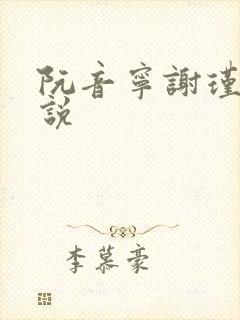 阮音寧謝瑾
說
李慕豪